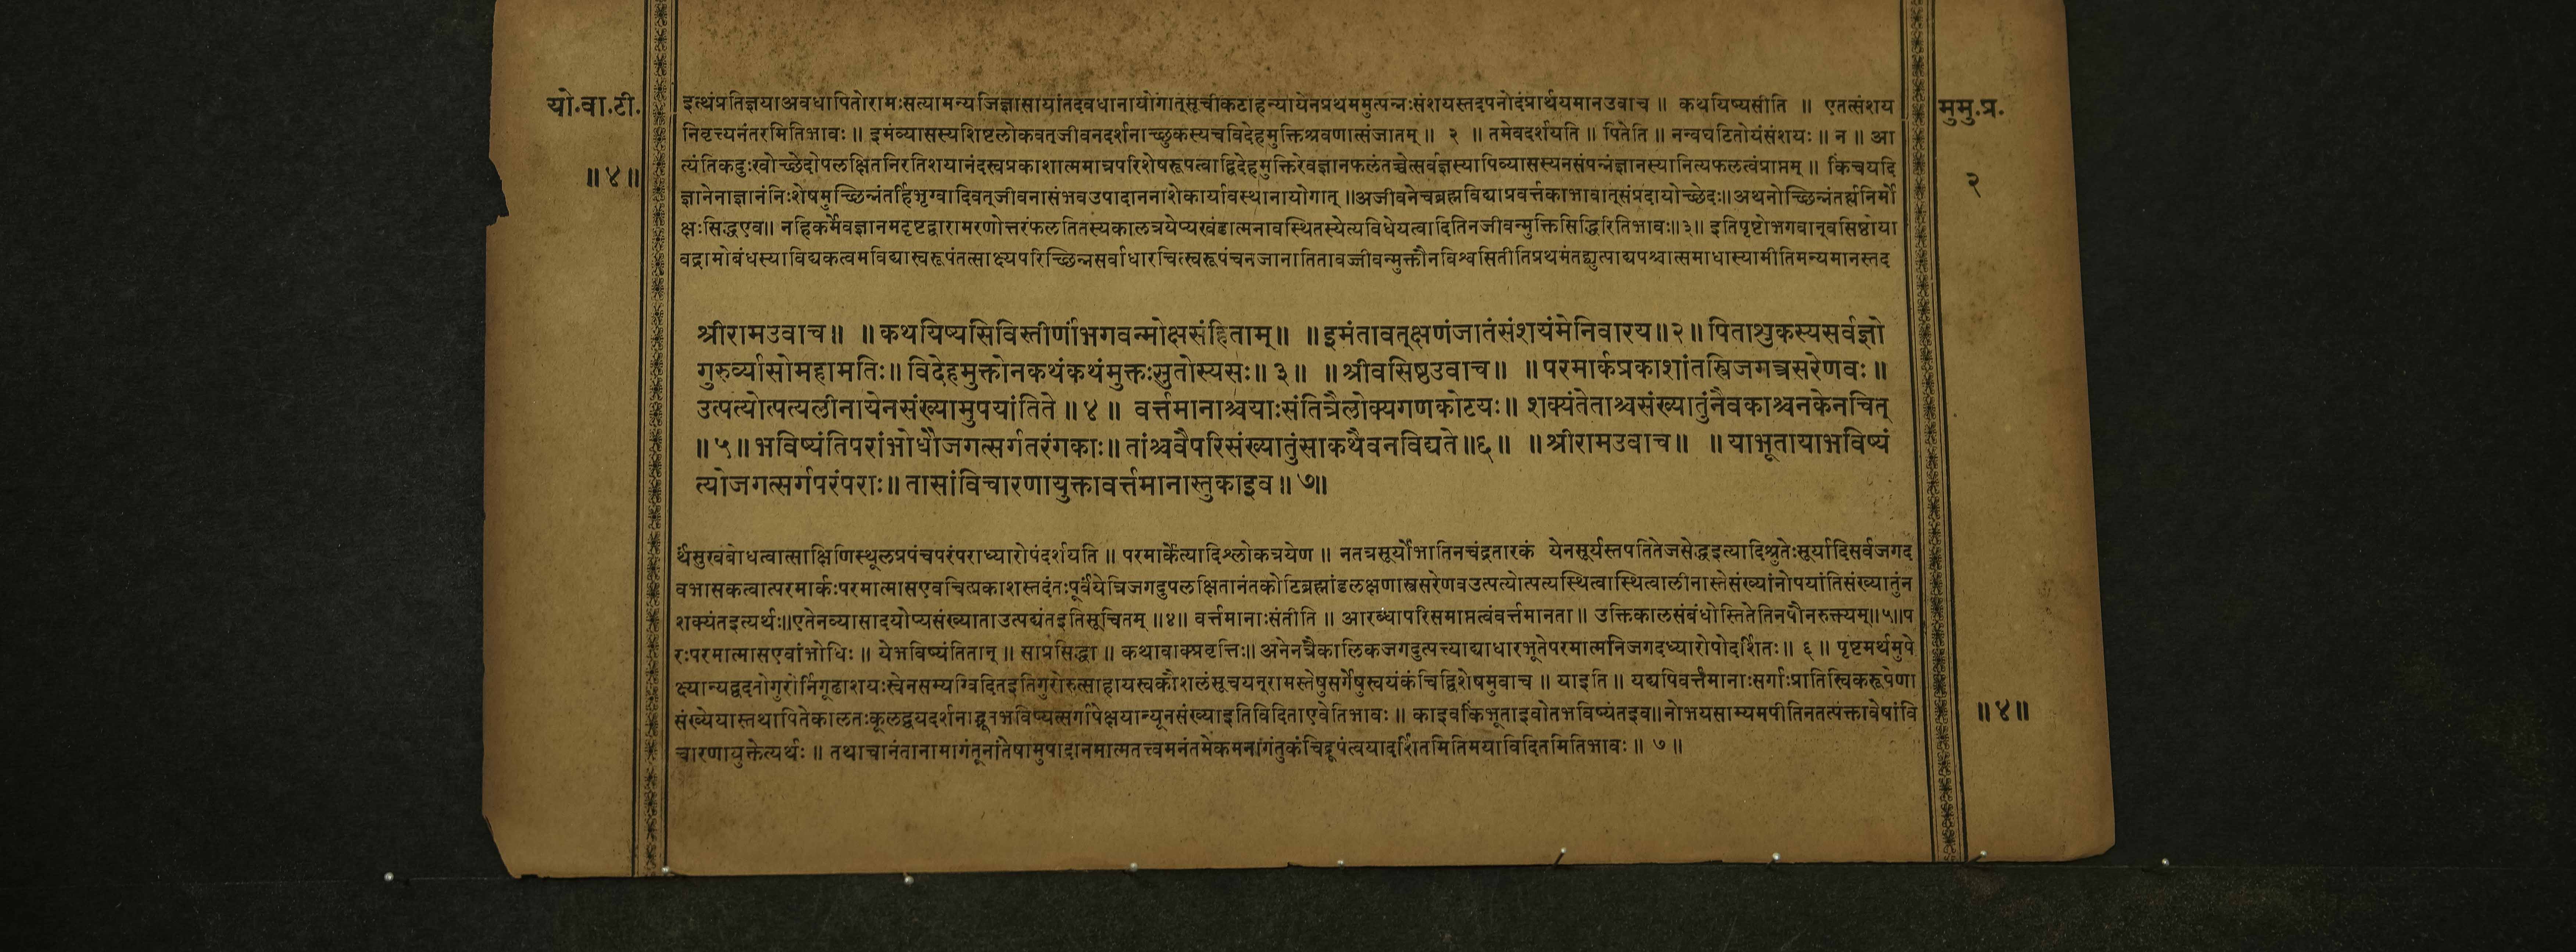 यो.वा.टी.
॥४॥
मुमु.प्र.
२
इत्थंप्रतिज्ञयाअवधापितोरामःसत्यामन्यजिज्ञासायांतदवधानायोगात्सूचीकटाहन्यायेनप्रथममुत्पन्नःसंशयस्तदपनोदंप्रार्थयमानउवाच ॥ कथयिष्यसीति ॥ एतत्संशय
निवृत्त्यनंतरमितिभावः ॥ इमंव्यासस्यशिष्टलोकवत्जीवनदर्शनाच्छुकस्यचविदेहमुक्तिश्रवणात्संजातम् ॥ २ ॥ तमेवदर्शयति ॥ पितेति ॥ नन्वघटितोयंसंशयः ॥ न ॥ आ
त्यंतिकदुःखोच्छेदोपलक्षितनिरतिशयानंदस्वप्रकाशात्ममात्रपरिशेषरूपत्वाद्विदेहमुक्तिरेवज्ञानफलंतच्चेत्सर्वज्ञस्यापिव्यासस्यनसंपन्नंज्ञानस्यानित्यफलत्वंप्राप्तम् ॥ किंचयदि
ज्ञानेनाज्ञानंनिःशेषमुच्छिन्नंतर्हिभृग्वादिवत्जीवनासंभवउपादाननाशेकार्यावस्थानायोगात् ॥अजीवनेचब्रह्मविद्याप्रवर्त्तकाभावात्संप्रदायोच्छेदः॥अथनोच्छिन्नंतर्ह्यनिर्मो
क्षःसिद्धएव॥ नहिकर्मेवज्ञानमदृष्टद्वारामरणोत्तरंफलतितस्यकालत्रयेप्यखंडात्मनावस्थितस्येत्यविधेयत्वादितिनजीवन्मुक्तिसिद्धिरितिभावः॥३॥ इतिपृष्टोभगवान्वसिष्ठोया
वद्रामोबंधस्याविद्यकत्वमविद्यास्वरूपंतत्साक्ष्यपरिच्छिन्नसर्वाधारचित्स्वरूपंचनजानातितावज्जीवन्मुक्तौनविश्वसितीतिप्रथमंतद्व्युत्पाद्यपश्चात्समाधास्यामीतिमन्यमानस्तद
श्रीरामउवाच॥ ॥कथयिष्यसिविस्तीर्णांभगवन्मोक्षसंहिताम्॥ ॥इमंतावत्क्षणंजातंसंशयंमेनिवारय॥२॥पिताशुकस्यसर्वज्ञो
गुरुर्व्यासोमहामतिः॥विदेहमुक्तोनकथंकथंमुक्तःसुतोस्यसः॥३॥ ॥श्रीवसिष्ठउवाच॥ ॥परमार्कप्रकाशांतस्त्रिजगत्त्रसरेणवः॥
उत्पत्योत्पत्यलीनायेनसंख्यामुपयांतिते॥४॥ वर्त्तमानाश्चयाःसंतित्रैलोक्यगणकोटयः॥शक्यंतेताश्चसंख्यातुंनैवकाश्चनकेनचित्
॥५॥भविष्यंतिपरांभोधौजगत्सर्गतरंगकाः॥तांश्चवैपरिसंख्यातुंसाकथैवनविद्यते॥६॥ ॥श्रीरामउवाच॥ ॥याभूतायाभविष्यं
त्योजगत्सर्गपरंपराः॥तासांविचारणायुक्तावर्त्तमानास्तुकाइव॥७॥
र्थंसुखबोधत्वात्साक्षिणिस्थूलप्रपंचपरंपराध्यारोपंदर्शयति ॥ परमार्केत्यादिश्लोकत्रयेण ॥ नतत्रसूर्योभातिनचंद्रतारकं येनसूर्यस्तपतितेजसेद्धइत्यादिश्रुतेःसूर्यादिसर्वजगद
वभासकत्वात्परमार्कःपरमात्मासएवचित्प्रकाशस्तदंतःपूर्वंयेत्रिजगदुपलक्षितानंतकोटिब्रह्मांडलक्षणास्त्रसरेणवउत्पत्योत्पत्यस्थित्वास्थित्वालीनास्तेसंख्यांनोपयांतिसंख्यातुंन
शक्यंतइत्यर्थः॥एतेनव्यासादयोप्यसंख्याताउत्पद्यंतइतिसूचितम् ॥४॥ वर्त्तमानाःसंतीति ॥ आरब्धापरिसमाप्तत्वंवर्त्तमानता ॥ उक्तिकालसंबंधोस्तितेतिनपौनरुक्त्यम्॥५॥प
रःपरमात्मासएवांभोधिः ॥ येभविष्यंतितान् ॥ साप्रसिद्धा ॥ कथावाक्प्रवृत्तिः॥ अनेनत्रैकालिकजगदुत्पत्त्याद्याधारभूतेपरमात्मनिजगदध्यारोपोदर्शितः॥ ६ ॥ पृष्टमर्थमुपे
क्ष्यान्यद्वदतोगुरोर्निगूढाशयःस्वेनसम्यग्विदितइतिगुरोरुत्साहायस्वकौशलंसूचयन्रामस्तेषुसर्गेषुस्वयंकंचिद्विशेषमुवाच ॥ याइति ॥ यद्यपिवर्त्तमानाःसर्गाःप्रातिस्विकरूपेणा
संख्येयास्तथापितेकालतःकूलद्वयदर्शनाद्भूतभविष्यत्सर्गापेक्षयान्यूनसंख्याइतिविदिताएवेतिभावः ॥ काइवकिंभूताइवोतभविष्यंतइव॥नोभयसाम्यमपीतिनतत्पंक्तावेषांवि
चारणायुक्तेत्यर्थः ॥ तथाचानंतानामागंतूनांतेषामुपादानमात्मतत्त्वमनंतमेकमनागंतुकंचिद्रूपंत्वयादर्शितमितिमयाविदितमितिभावः ॥ ७ ॥
॥४॥